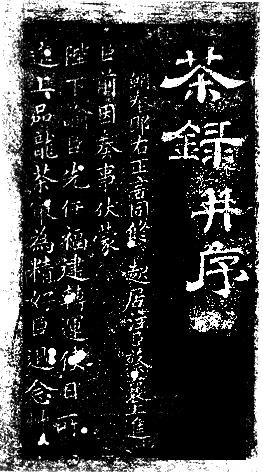 茶録并序
朝奉郎右正言同修起居注臣蔡襄上進
臣前因奏事伏蒙
陛下諭臣先任福建轉運使日所
進上品龍茶最為精好臣退念草